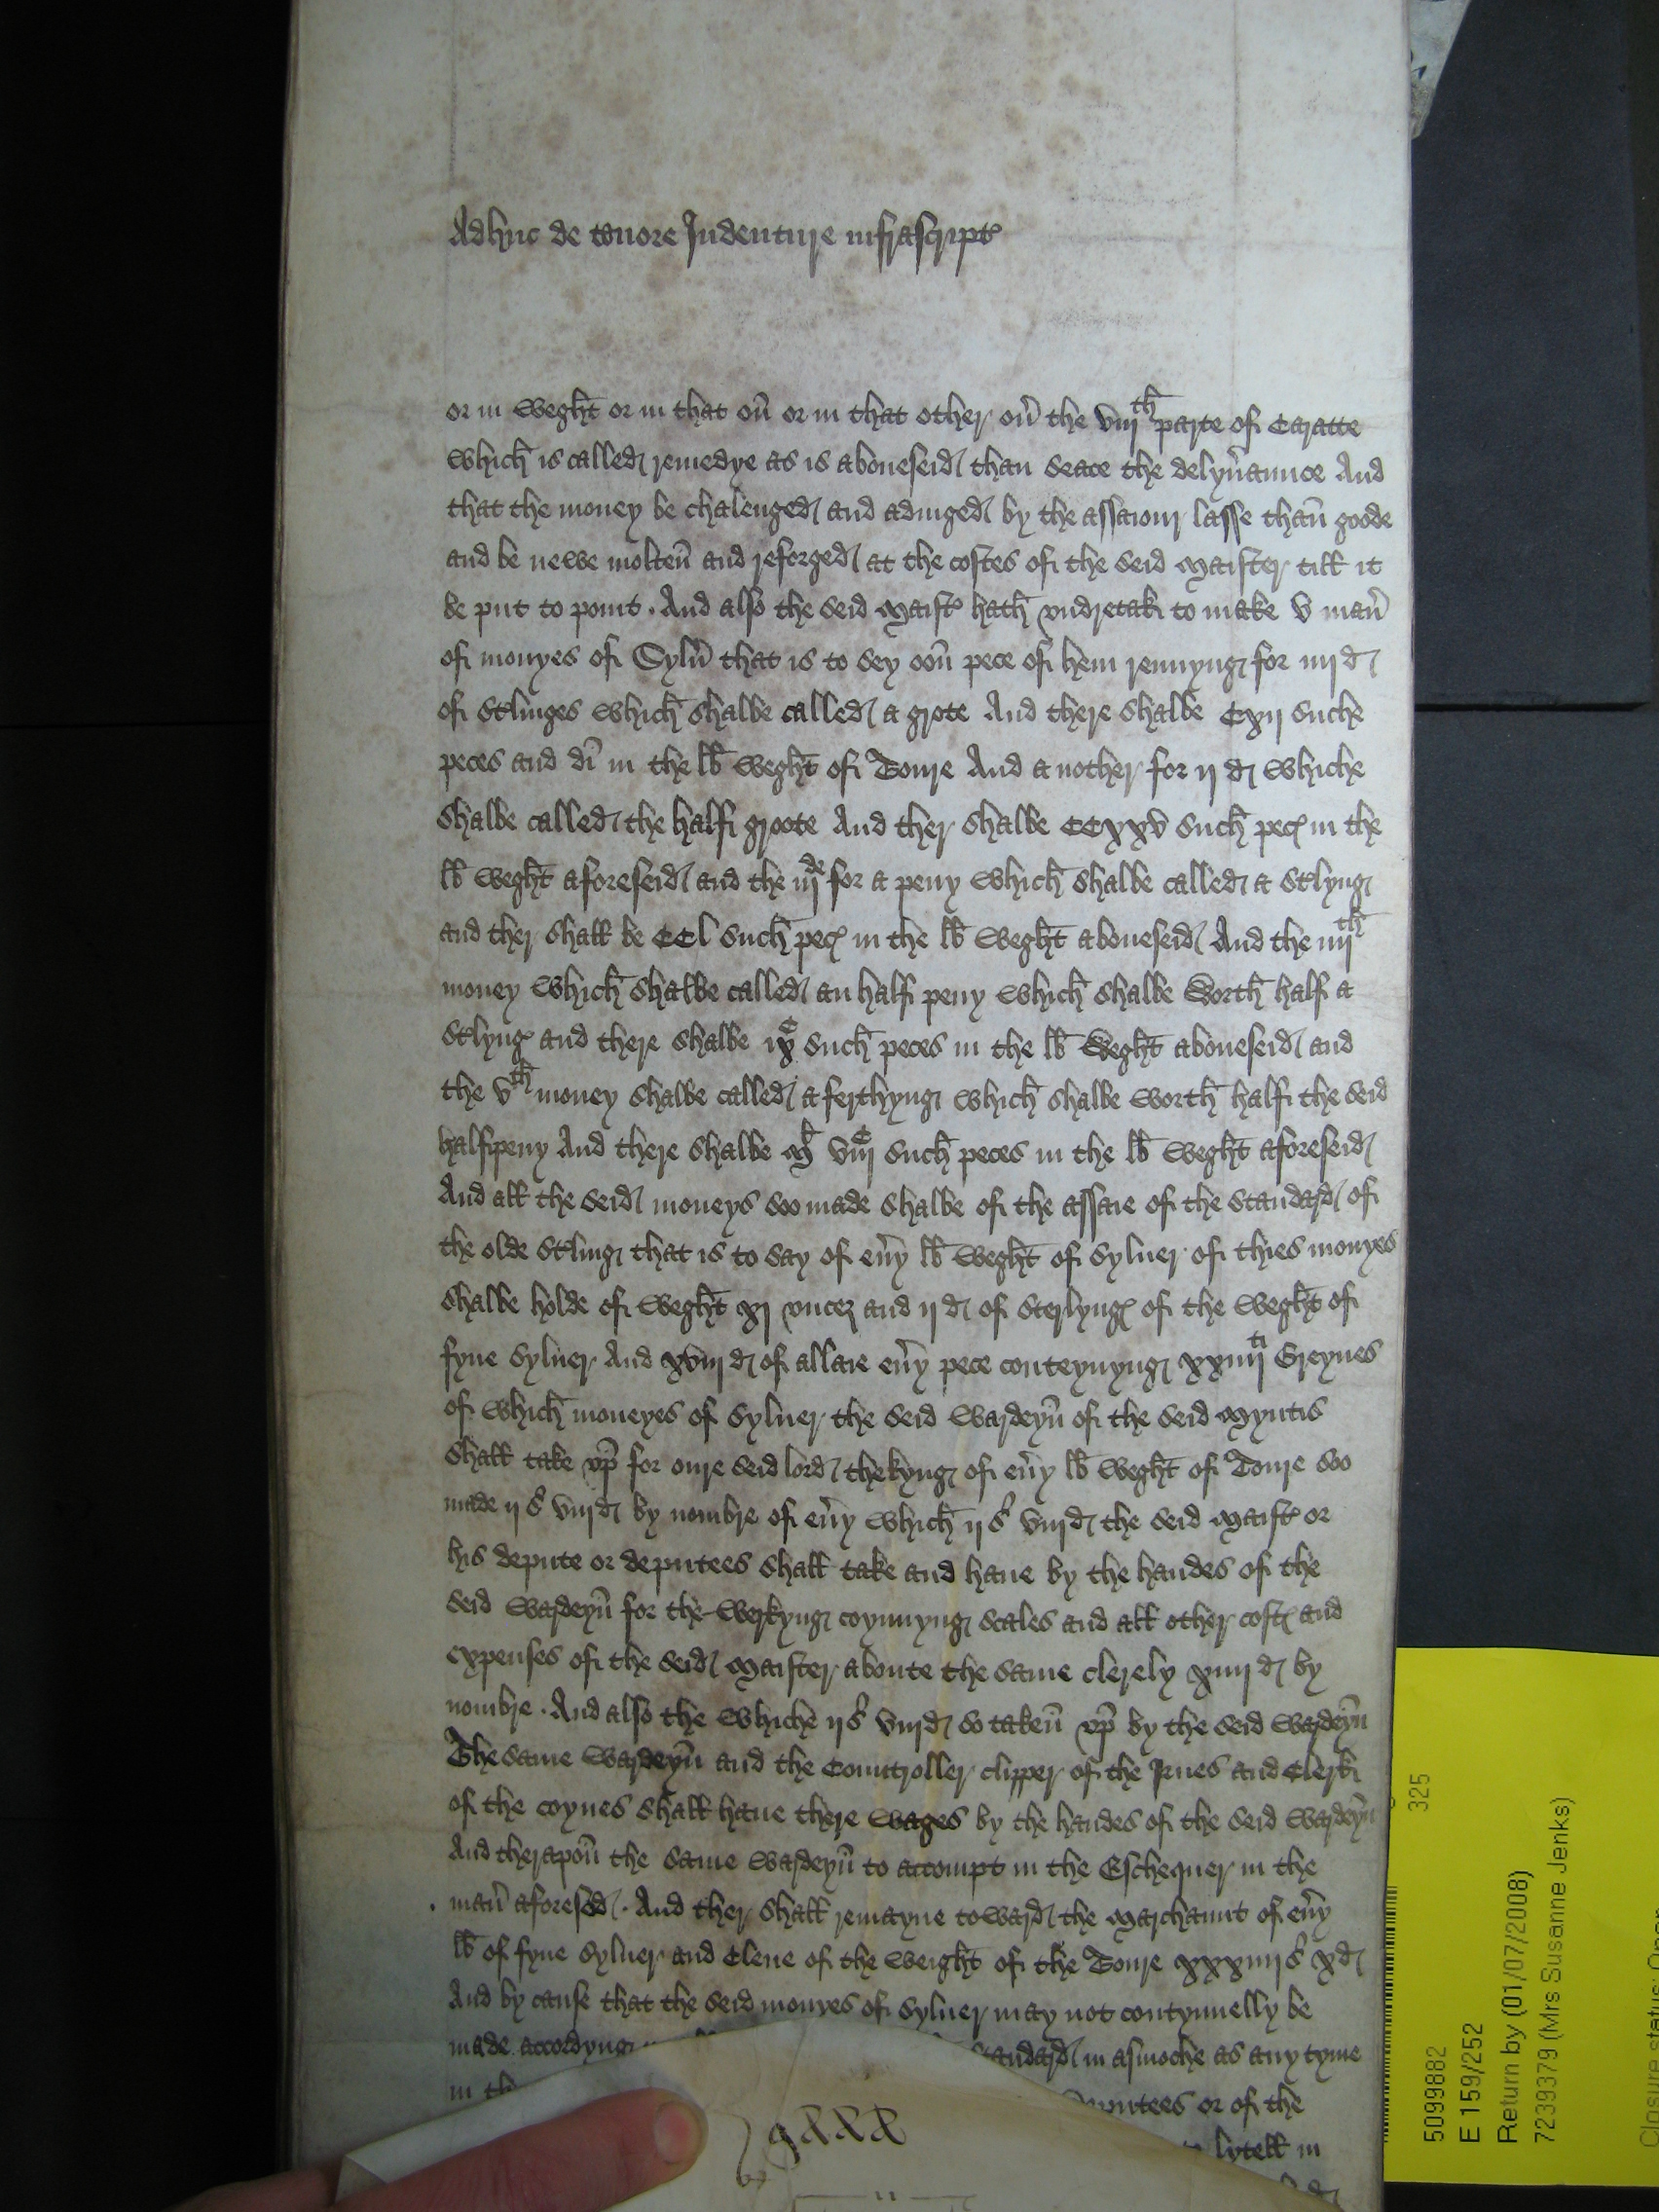 Adhuc de tenore Indenture infrascript'
or in weght or in that on̄ or in that other ou'e the viijth parte of Caratte
which is called remedye as is aboueseid than seace the delyu'aunce And
that the money be chalenged and adiuged by the assaiour lasse than̄ goode
and be newe molten̄ and reforged at the costes of the seid Maister till it
be put to point . And also the seid Maist' hath vndretak to make v man'
of monyes of Sylu' that is to sey oon̄ pece of hem rennyng for iiij d
of St'linges which shalbe called a grote And there shalbe Cxij suche
peces and di in the lb weght of Toure And a nother for ij d whiche
shalbe called the half groote And ther shalbe CCxxv such pec' in the
lb weght aforeseid and the iijde for a peny which shalbe called a St'lyng
and ther shall be CCl such pec' in the lb weght aboueseid And the iiijth
money which shalbe called an half peny which shalbe worth half a
St'lyng' and there shalbe ixC such peces in the lb weght aboueseid and
the vth money shalbe called a ferthyng which shalbe worth half the seid
halfpeny And there shalbe Ml viijC such peces in the lb weght aforeseid
And all the seid moneys soo made shalbe of the assaie of the standard of
the olde St'ling that is to say of eu'y lb weght of syluer of thies monyes
shalbe holde of weght xj vncez and ij d of sterlyng' of the weght of
fyne syluer And xviij d of allaie eu'y pece conteynyng xxiiijti Greynes
of which moneyes of syluer the seid Wardeyn̄ of the seid Myntis
shall take vp̄ for oure seid lord the kyng of eu'y lb weght of Toure soo
made ij s' viij d by nombre of eu'y which ij s' viij d the seid Maist' or
his depute or deputees shall take and haue by the handes of the
seid Wardeyn̄ for the werkyng coynnyng scales and all other cost' and
expenses of the seid Maister aboute the same clerely xiiij d by
nombre . And also the whiche ij s' viij d so taken̄ vp̄ by the seid Wardeyn̄
The same Wardeyn̄ and the Countroller clipper of the Irnes and Clerk
of the coynes shall haue there wages by the handes of the seid Wardeyn̄
And therapon̄ the same Wardeyn̄ to accompt in the Eschequer in the
man' aforesed . And ther shall remayne toward the Marchaunt of eu'y
lb of fyne syluer and Clene of the weight of the Toure xxxiiij s' x d
And by cause that the seid monyes of syluer may not contynuelly be
made accordyng standard in asmoche as any tyme
in th putees or of the
lytell in
325
5099882
E 159/252
Return by (01/07/2008)
7239379 (Mrs Susanne Jenks)
Closure status: Open